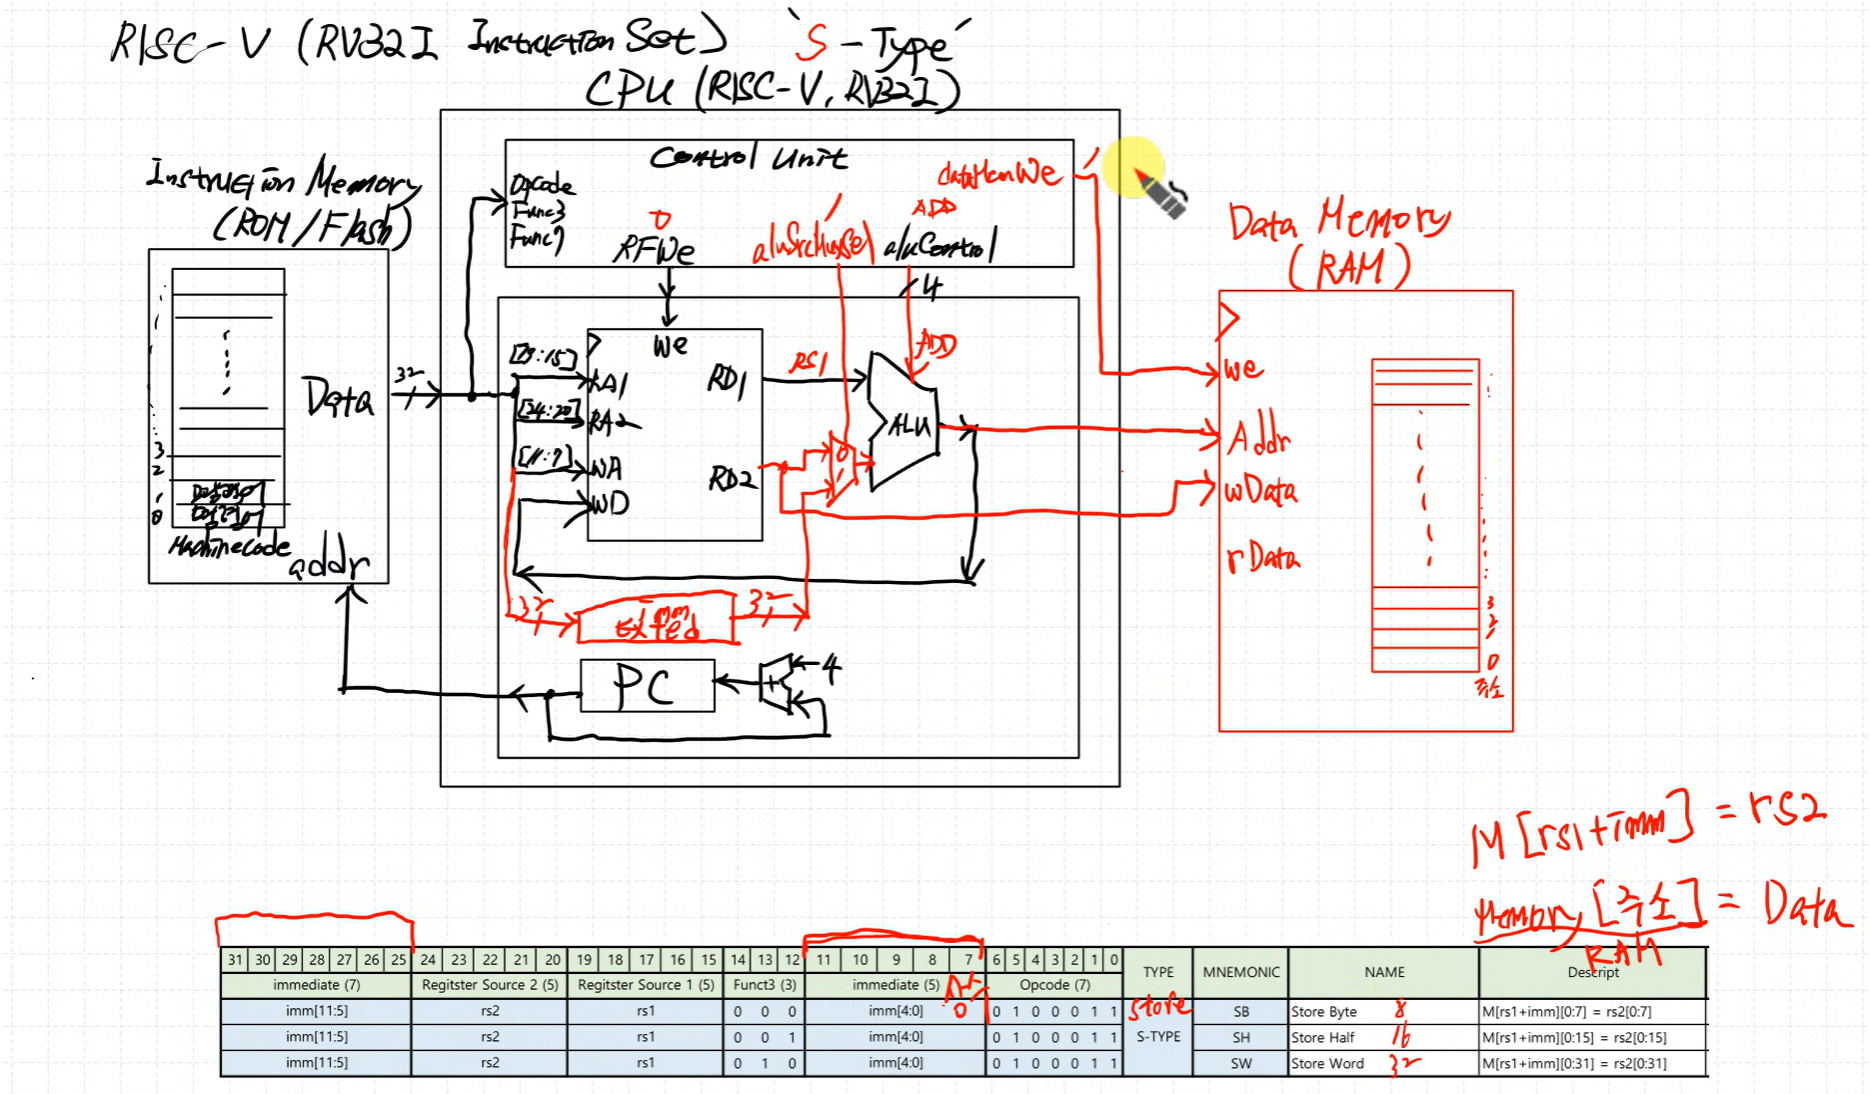 RISC-V (RV32I Instruction Set) 'S-Type'
CPU (RISC-V, RV32I)
Instruction Memory
(ROM/Flash)
3
2
1
0
Machinecode
Data
addr
32
Control Unit
Opcode
Func3
Func7
0
RFWe
aluSrcMuxSel
ADD
aluControl
dataMemWe
1
4
[19:15]
[24:20]
[11:7]
We
RA1
RA2
WA
WD
RD1
RD2
RS1
ADD
ALU
0
1
32
Imm
Extend
32
PC
+
4
Data Memory
(RAM)
We
Addr
wData
rData
3
2
1
0
주소
M[rs1+imm] = rs2
Memory [주소] = Data
RAM
31 30 29 28 27 26 25 24 23 22 21 20 19 18 17 16 15 14 13 12 11 10 9 8 7 6 5 4 3 2 1 0 TYPE MNEMONIC NAME Descript
immediate (7) Regitster Source 2 (5) Regitster Source 1 (5) Funct3 (3) immediate (5) Opcode (7)
imm[11:5] rs2 rs1 0 0 0 imm[4:0] 0 0 1 0 0 0 1 1 store SB Store Byte 8 M[rs1+imm][0:7] = rs2[0:7]
imm[11:5] rs2 rs1 0 0 1 imm[4:0] 0 1 0 0 0 1 1 S-TYPE SH Store Half 16 M[rs1+imm][0:15] = rs2[0:15]
imm[11:5] rs2 rs1 0 1 0 imm[4:0] 0 1 0 0 0 1 1 SW Store Word 32 M[rs1+imm][0:31] = rs2[0:31]